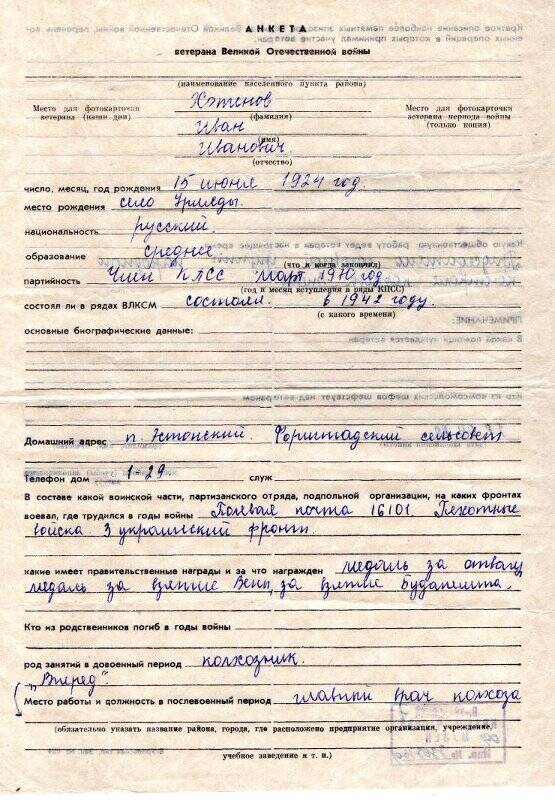 АНКЕТА
ветерана Великой Отечественной войны
(наименование населенного пункта района)
Место для фотокарточки
ветерана (наши дни)
Место для фотокарточки
ветерана периода войны
(только копия)
(фамилия)
Иван
(имя)
Иванович
(отчество)
число, месяц, год рождения 15 июня 1924 год.
место рождения село Урляды.
национальность русский.
образование среднее.
(что и когда закончил)
партийность Член КПСС март 1970 год
(год и месяц вступления в ряды КПСС)
состоял ли в рядах ВЛКСМ состоял. в 1942 году.
(с какого времени)
основные биографические данные:
Домашний адрес п. Эстонский. Форштадский сельсовет
Телефон дом 1-29 служ
В составе какой воинской части, партизанского отряда, подпольной организации, на каких фронтах
воевал, где трудился в годы войны Полевая почта 16101. Пехотные
войска. 3 украинский фронт.
какие имеет правительственные награды и за что награжден медаль за отвагу
медаль за взятие Вены, за взятие Будапешта.
Кто из родственников погиб в годы войны
род занятий в довоенный период колхозник.
"Вперед".
Место работы и должность в послевоенный период главный врач колхоза
(обязательно указать название района, города, где расположено предприятие организация, учреждение,
учебное заведение и т. п.)